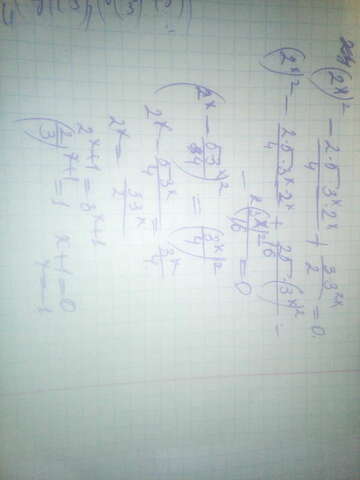 (2^x)² - 2·5·3^x·2^x/4 + 3·3^{2x}/2 = 0.
(2^x)² - 2·5·3^x·2^x/4 + 25·(3^x)²/16 =
= 0
(2^x - 5·3^x/4)² = (3^x/4)²
2^x - 5·3^x/4 = 3^x/4
2^x = 3·3^x/2
2^{x+1} = 3^{x+1}
(2/3)^{x+1} = 1 x+1=0
x=-1